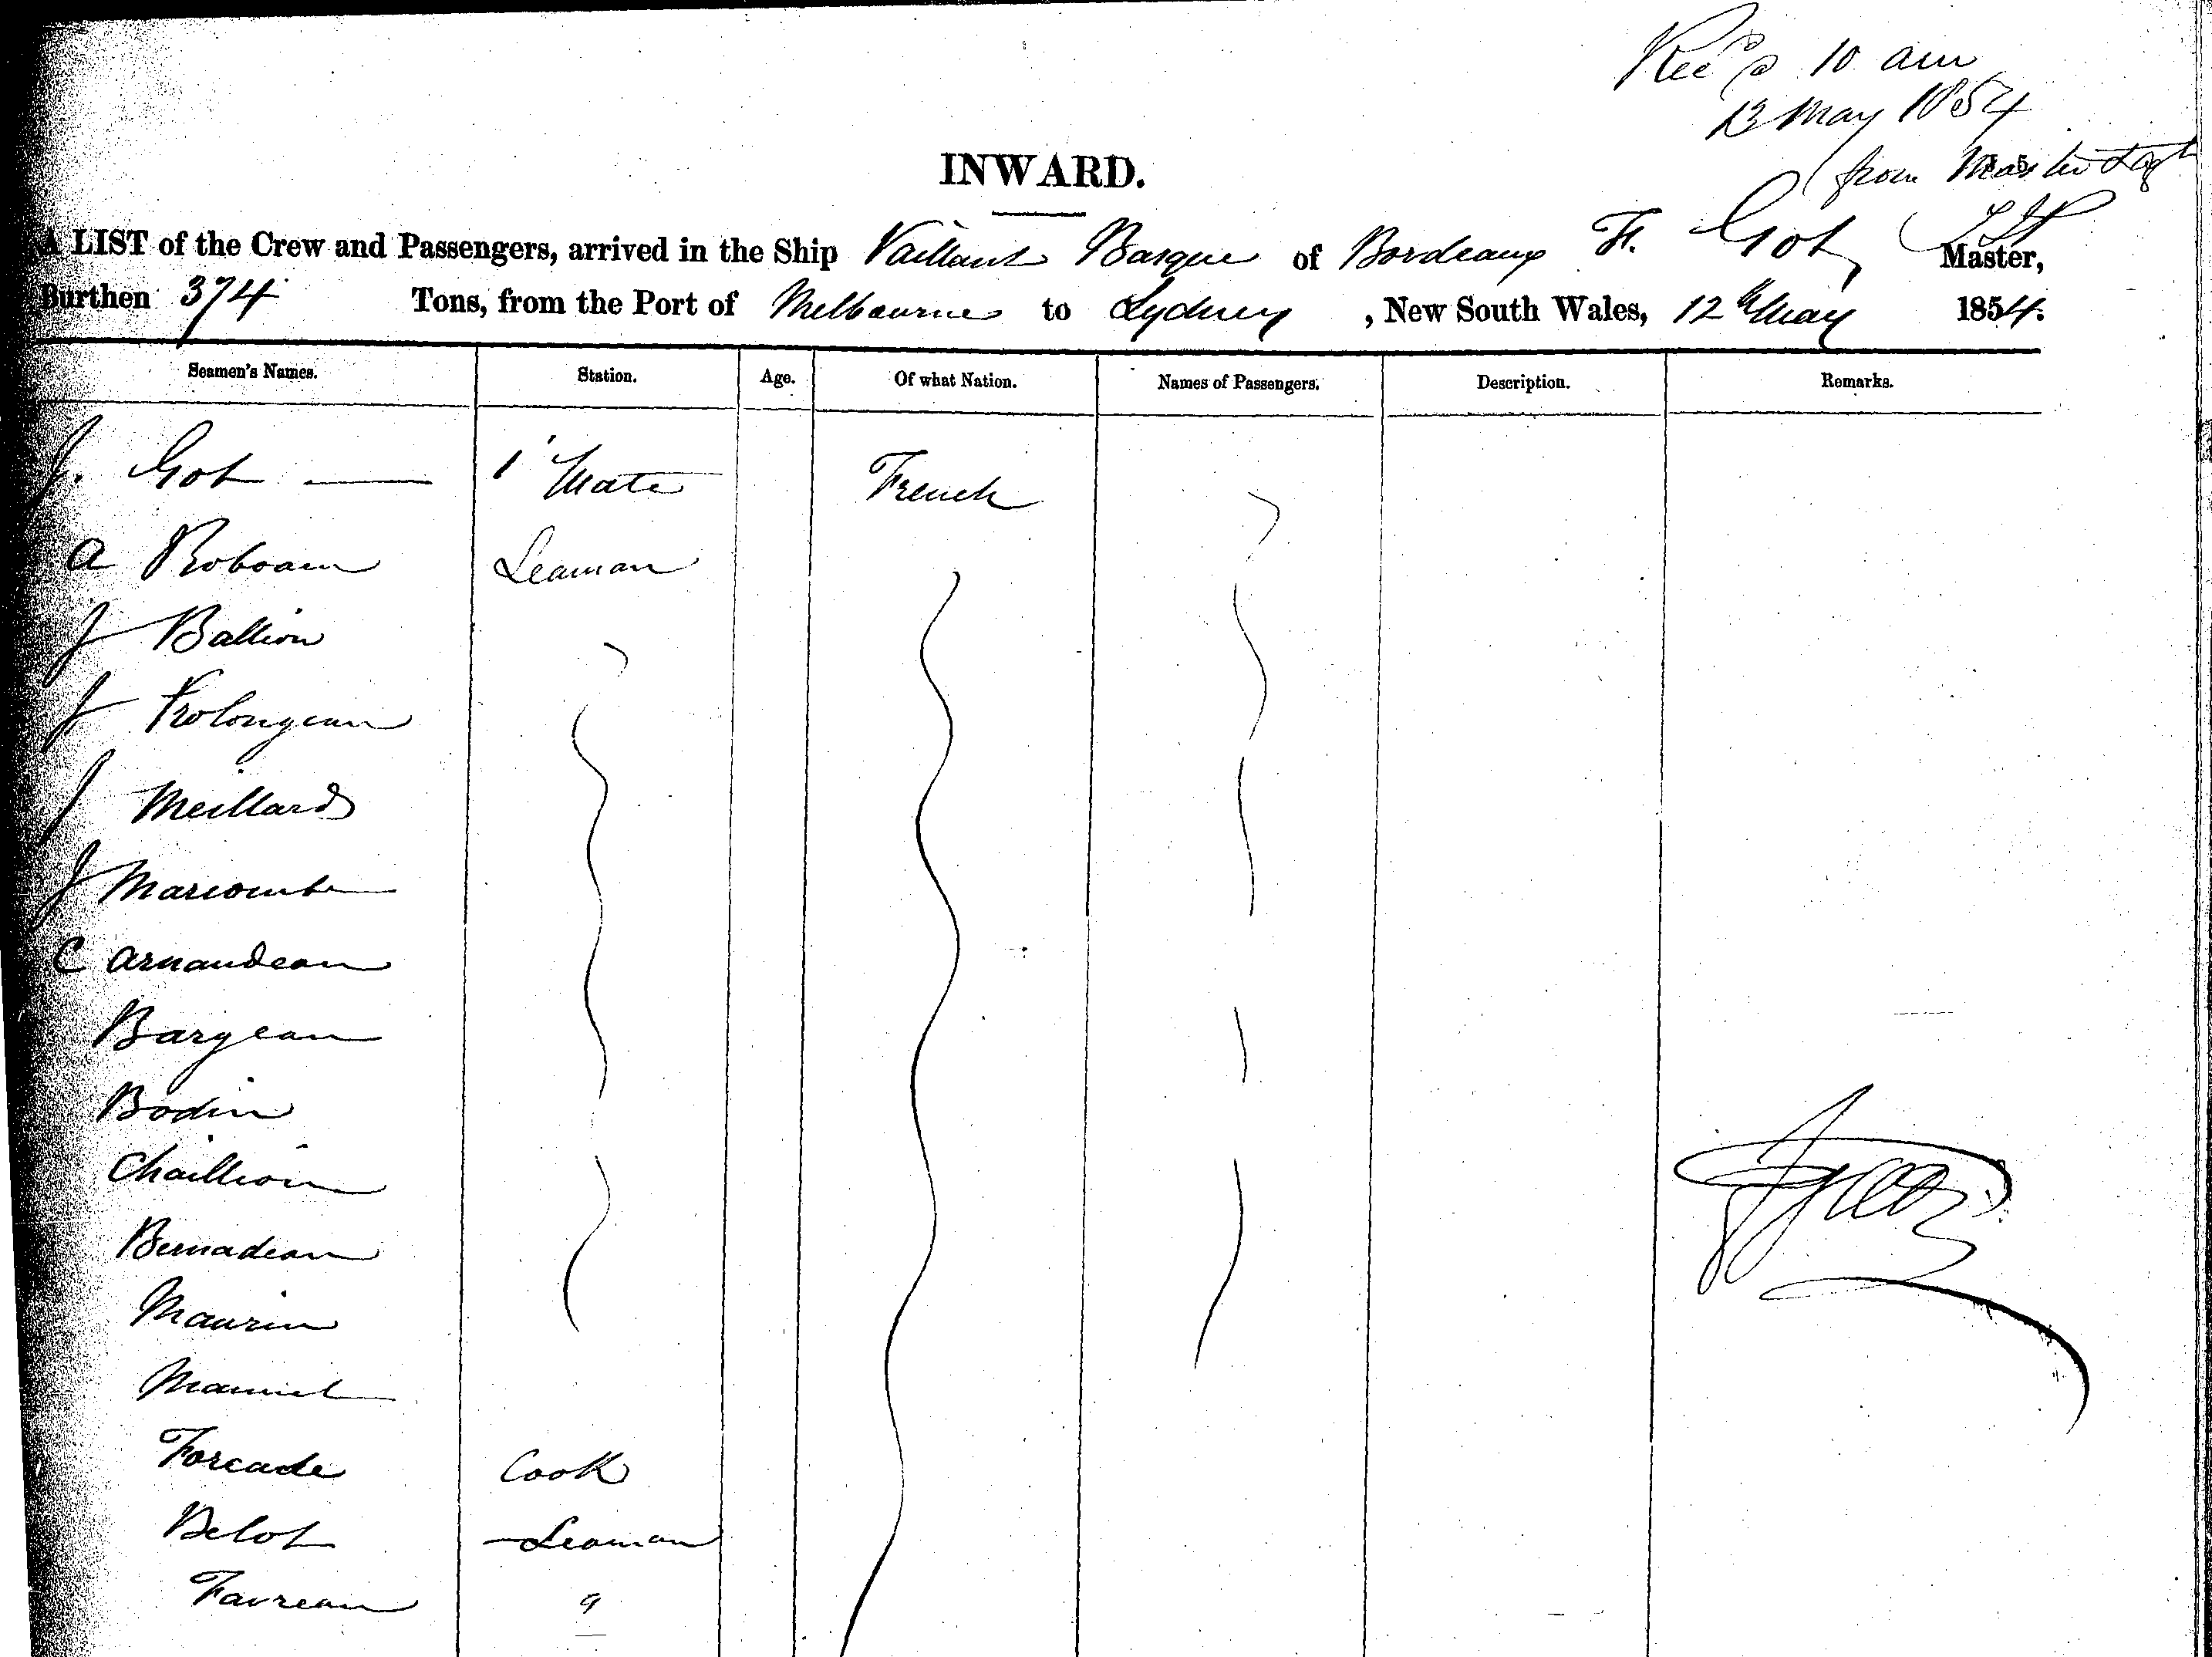 Rec @ 10 am
13 May 1854
from Master
INWARD.
A LIST of the Crew and Passengers, arrived in the Ship Vaillant Basque of Bordeaux F. Got Master,
Burthen 374 Tons, from the Port of Melbourne to Sydney, New South Wales, 12th May 1854.
Seamen's Names. Station. Age. Of what Nation. Names of Passengers. Description. Remarks.
J. Got 1 Mate French
A Roboam Seaman
J Ballion
J Frolongeau
J Meillard
J Marcombe
C Arnaudeau
Bargeau
Bodin
Chaillion
Bernadeau
Maurin
Manuel
Forcade Cook
Belot Seaman
Favreau "